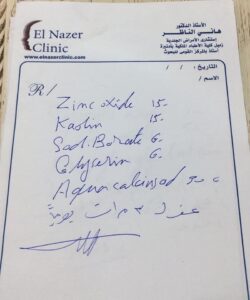 El Nazer
Clinic
www.elnazerclinic.com
الأستاذ الدكتور
هاني الناظر
إستشارى الأمراض الجلدية
زميل كلية الأطباء الملكية بأدنبرة
أستاذ بالمركز القومى للبحوث
التاريخ : / /
الاسم /
R/
Zinc oxide 15.
Kaolin 15.
Sod. Borate 6.
Glycerin 6.
Aqua calcis ad
مرات يومياً